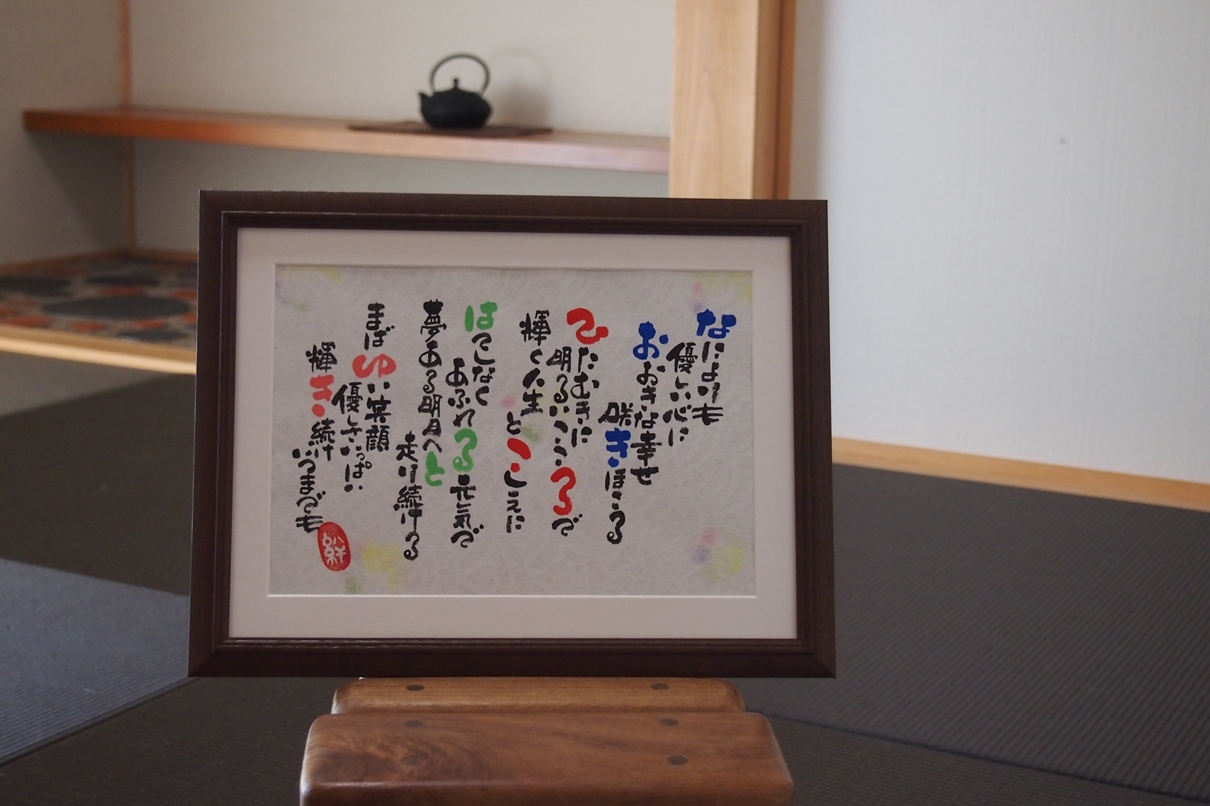 なによりも
優しい心に
おおきな幸せ
咲きほこる
ひたむきに
明るいこころで
輝く人生とこしえに
はてしなく
あふれる元気で
夢ある明日へと
走り続ける
まばゆい笑顔
優しさいっぱい
輝き続け
いつまでも